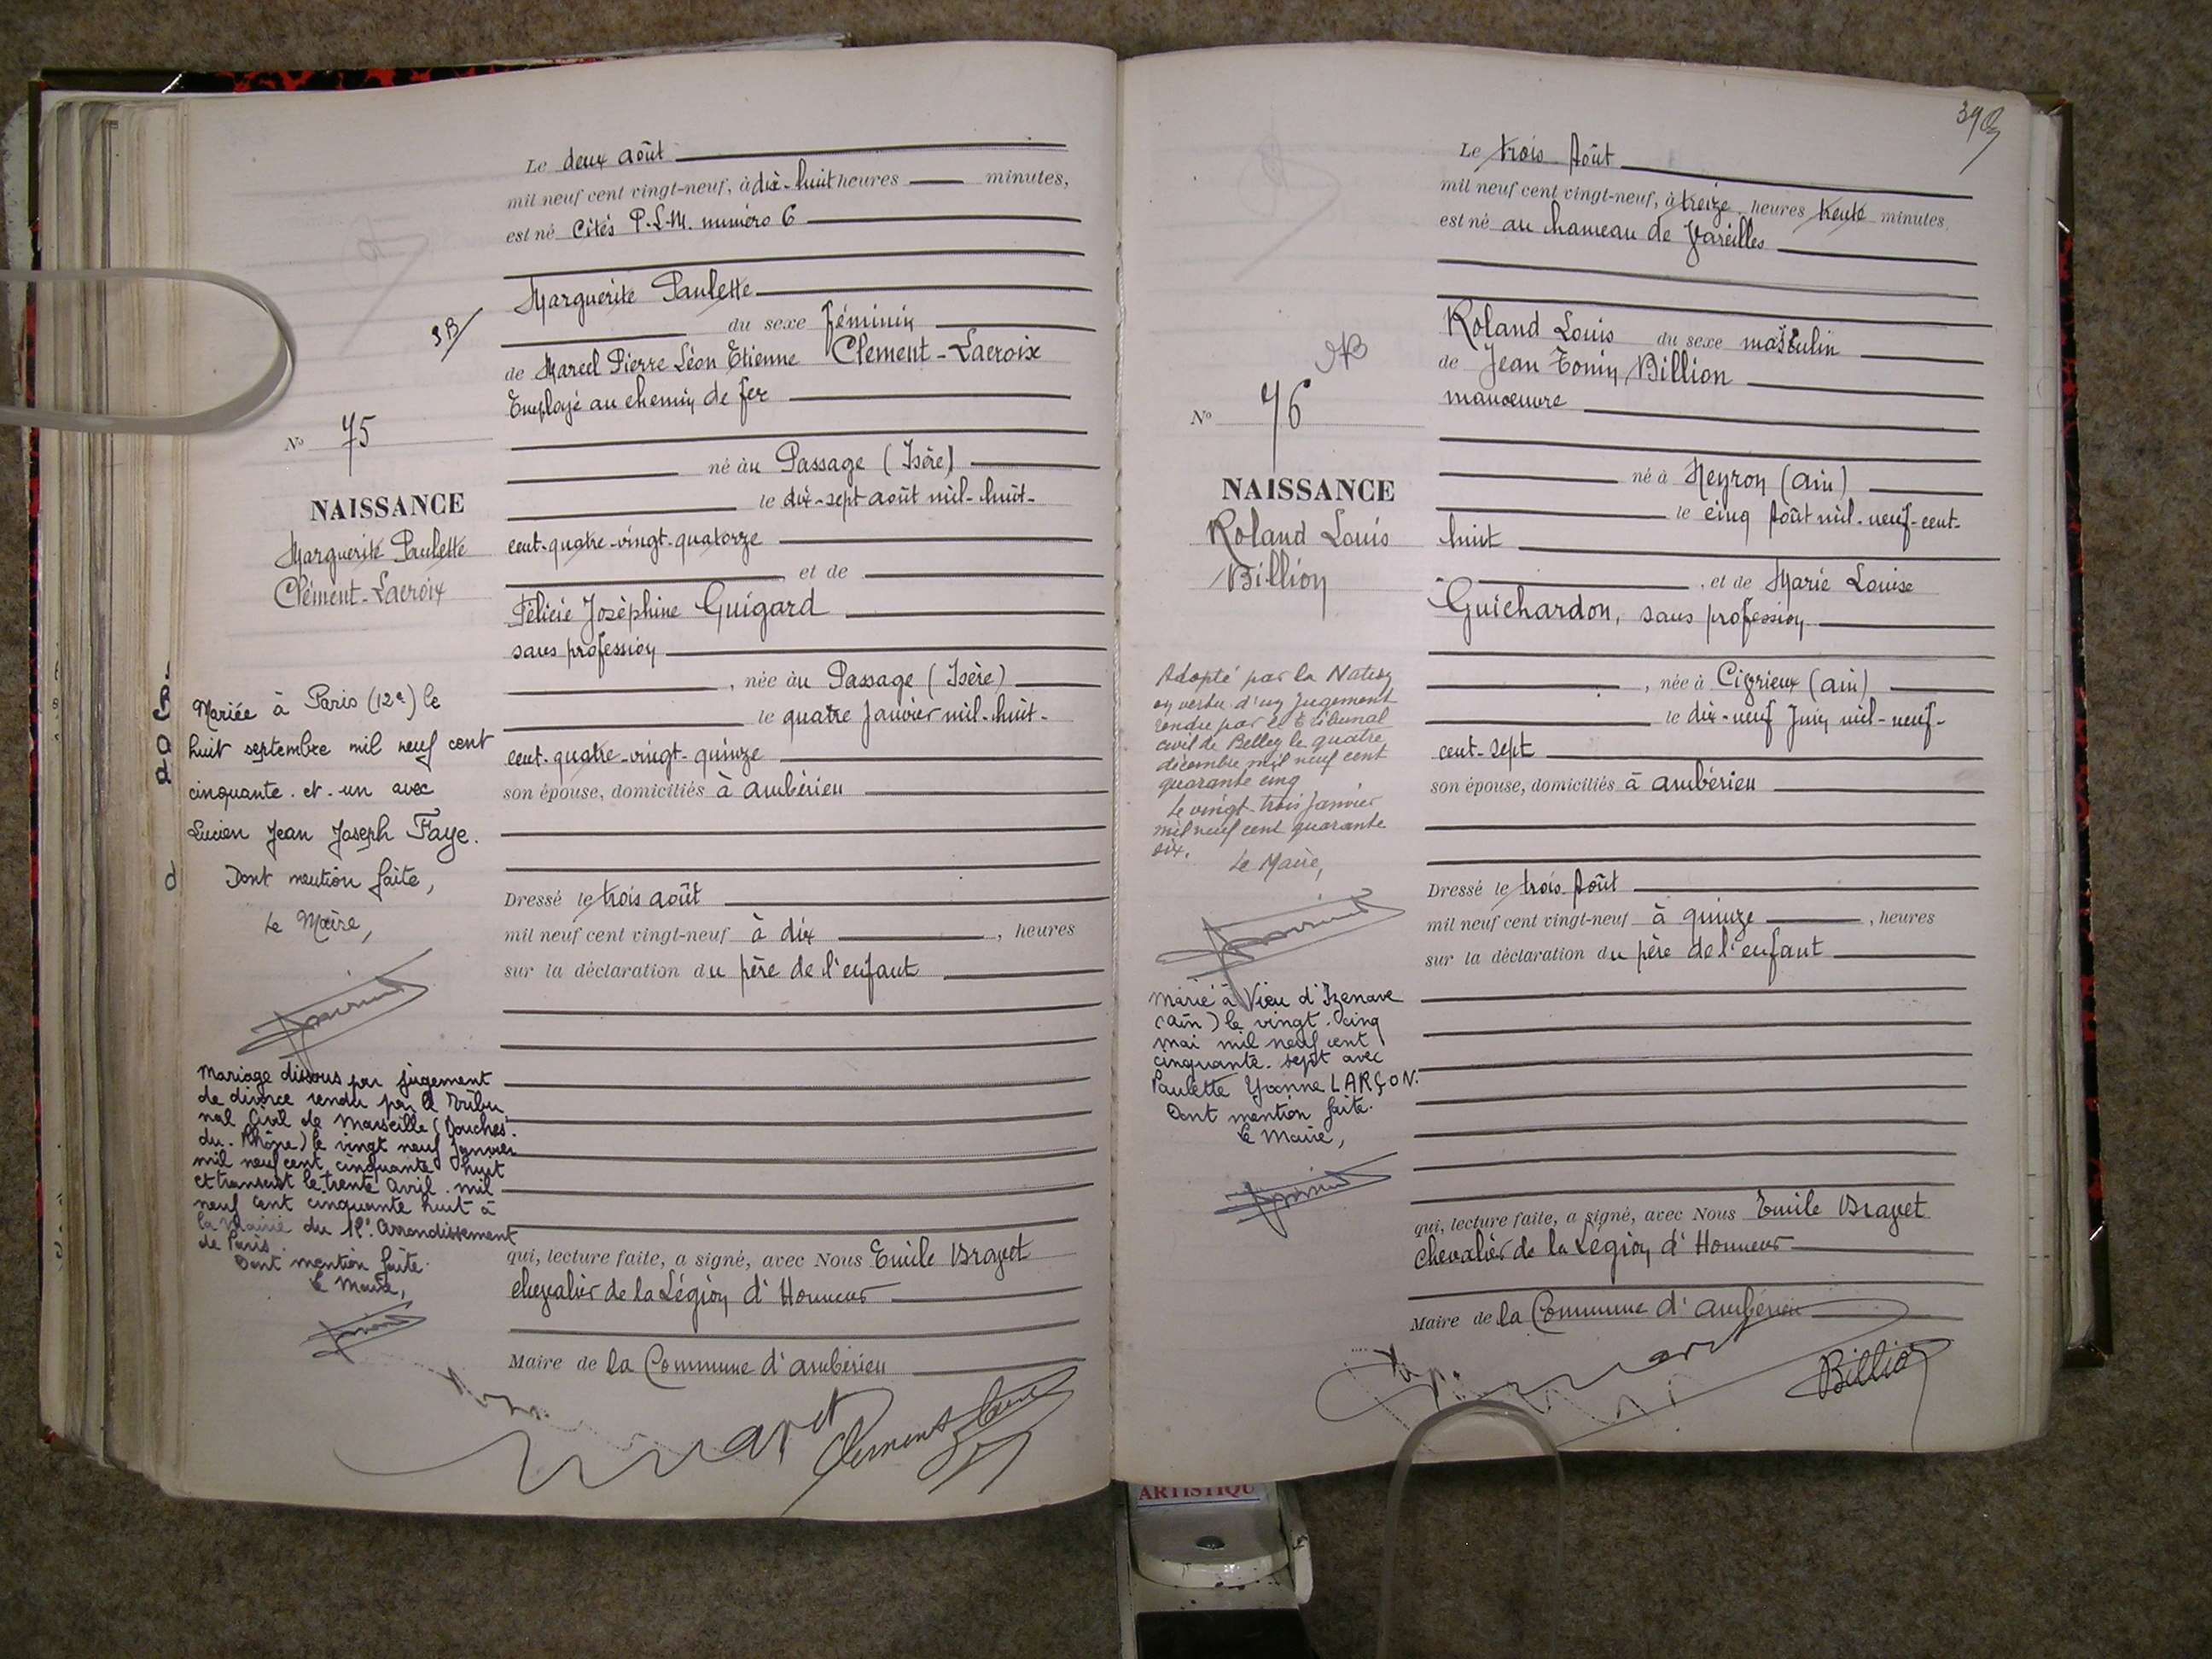 Le deux août
mil neuf cent vingt-neuf, à dix-huit heures minutes,
est né Cités P.L.M. numéro 6
Marguerite Paulette
du sexe féminin
de Marcel Pierre Léon Etienne Clément-Lacroix
Employé au chemin de fer
né au Passage (Isère)
le dix-sept août mil-huit-
cent-quatre-vingt-quatorze
et de
Félicie Joséphine Guigard
sans profession
, née au Passage (Isère)
le quatre Janvier mil-huit-
cent-quatre-vingt-quinze
son épouse, domiciliés à Ambérieu
Dressé le trois août
mil neuf cent vingt-neuf à dix , heures
sur la déclaration du père de l'enfant
qui, lecture faite, a signé, avec Nous Emile Bravet
chevalier de la Légion d'Honneur
Maire de la Commune d'Ambérieu
N° 75
NAISSANCE
Marguerite Paulette
Clément-Lacroix
Mariée à Paris (12e) le
huit septembre mil neuf cent
cinquante. et. un avec
Lucien Jean Joseph Faye.
Dont mention faite,
Le Maire,
Mariage dissous par jugement
de divorce rendu par le Tribu
nal Civil de Marseille (Bouches.
du. Rhône) le vingt neuf Janvier
mil neuf cent cinquante huit
et transcrit le trente Avril. mil
neuf cent cinquante huit à
la Mairie du 12e. Arrondissement
de Paris.
Dont mention faite.
Le Maire,
39
Le trois Août
mil neuf cent vingt-neuf, à treize heures trente minutes,
est né au hameau de Vareilles
Roland Louis du sexe masculin
de Jean Tonin Billion
manœuvre
né à Neyron (Ain)
le cinq Août mil-neuf-cent-
huit
, et de Marie Louise
Guichardon, sans profession
, née à Civrieux (Ain)
le dix-neuf Juin mil-neuf-
cent-sept
son épouse, domiciliés à Ambérieu
Dressé le trois Août
mil neuf cent vingt-neuf à quinze , heures
sur la déclaration du père de l'enfant
qui, lecture faite, a signé, avec Nous Emile Bravet
chevalier de la Légion d'Honneur
Maire de la Commune d'Ambérieu
Billion
N° 76
NAISSANCE
Roland Louis
Billion
Adopté par la Nation
en vertu d'un jugement
rendu par le tribunal
civil de Belley le quatre
décembre mil neuf cent
quarante cinq
Le vingt trois Janvier
mil neuf cent quarante
six.
Le Maire,
Marié à Vieu d'Izenave
(Ain) le vingt. cinq
mai mil neuf cent
cinquante. sept avec
Paulette Yvonne LARÇON.
Dont mention faite.
Le Maire,
ARTISTIQU